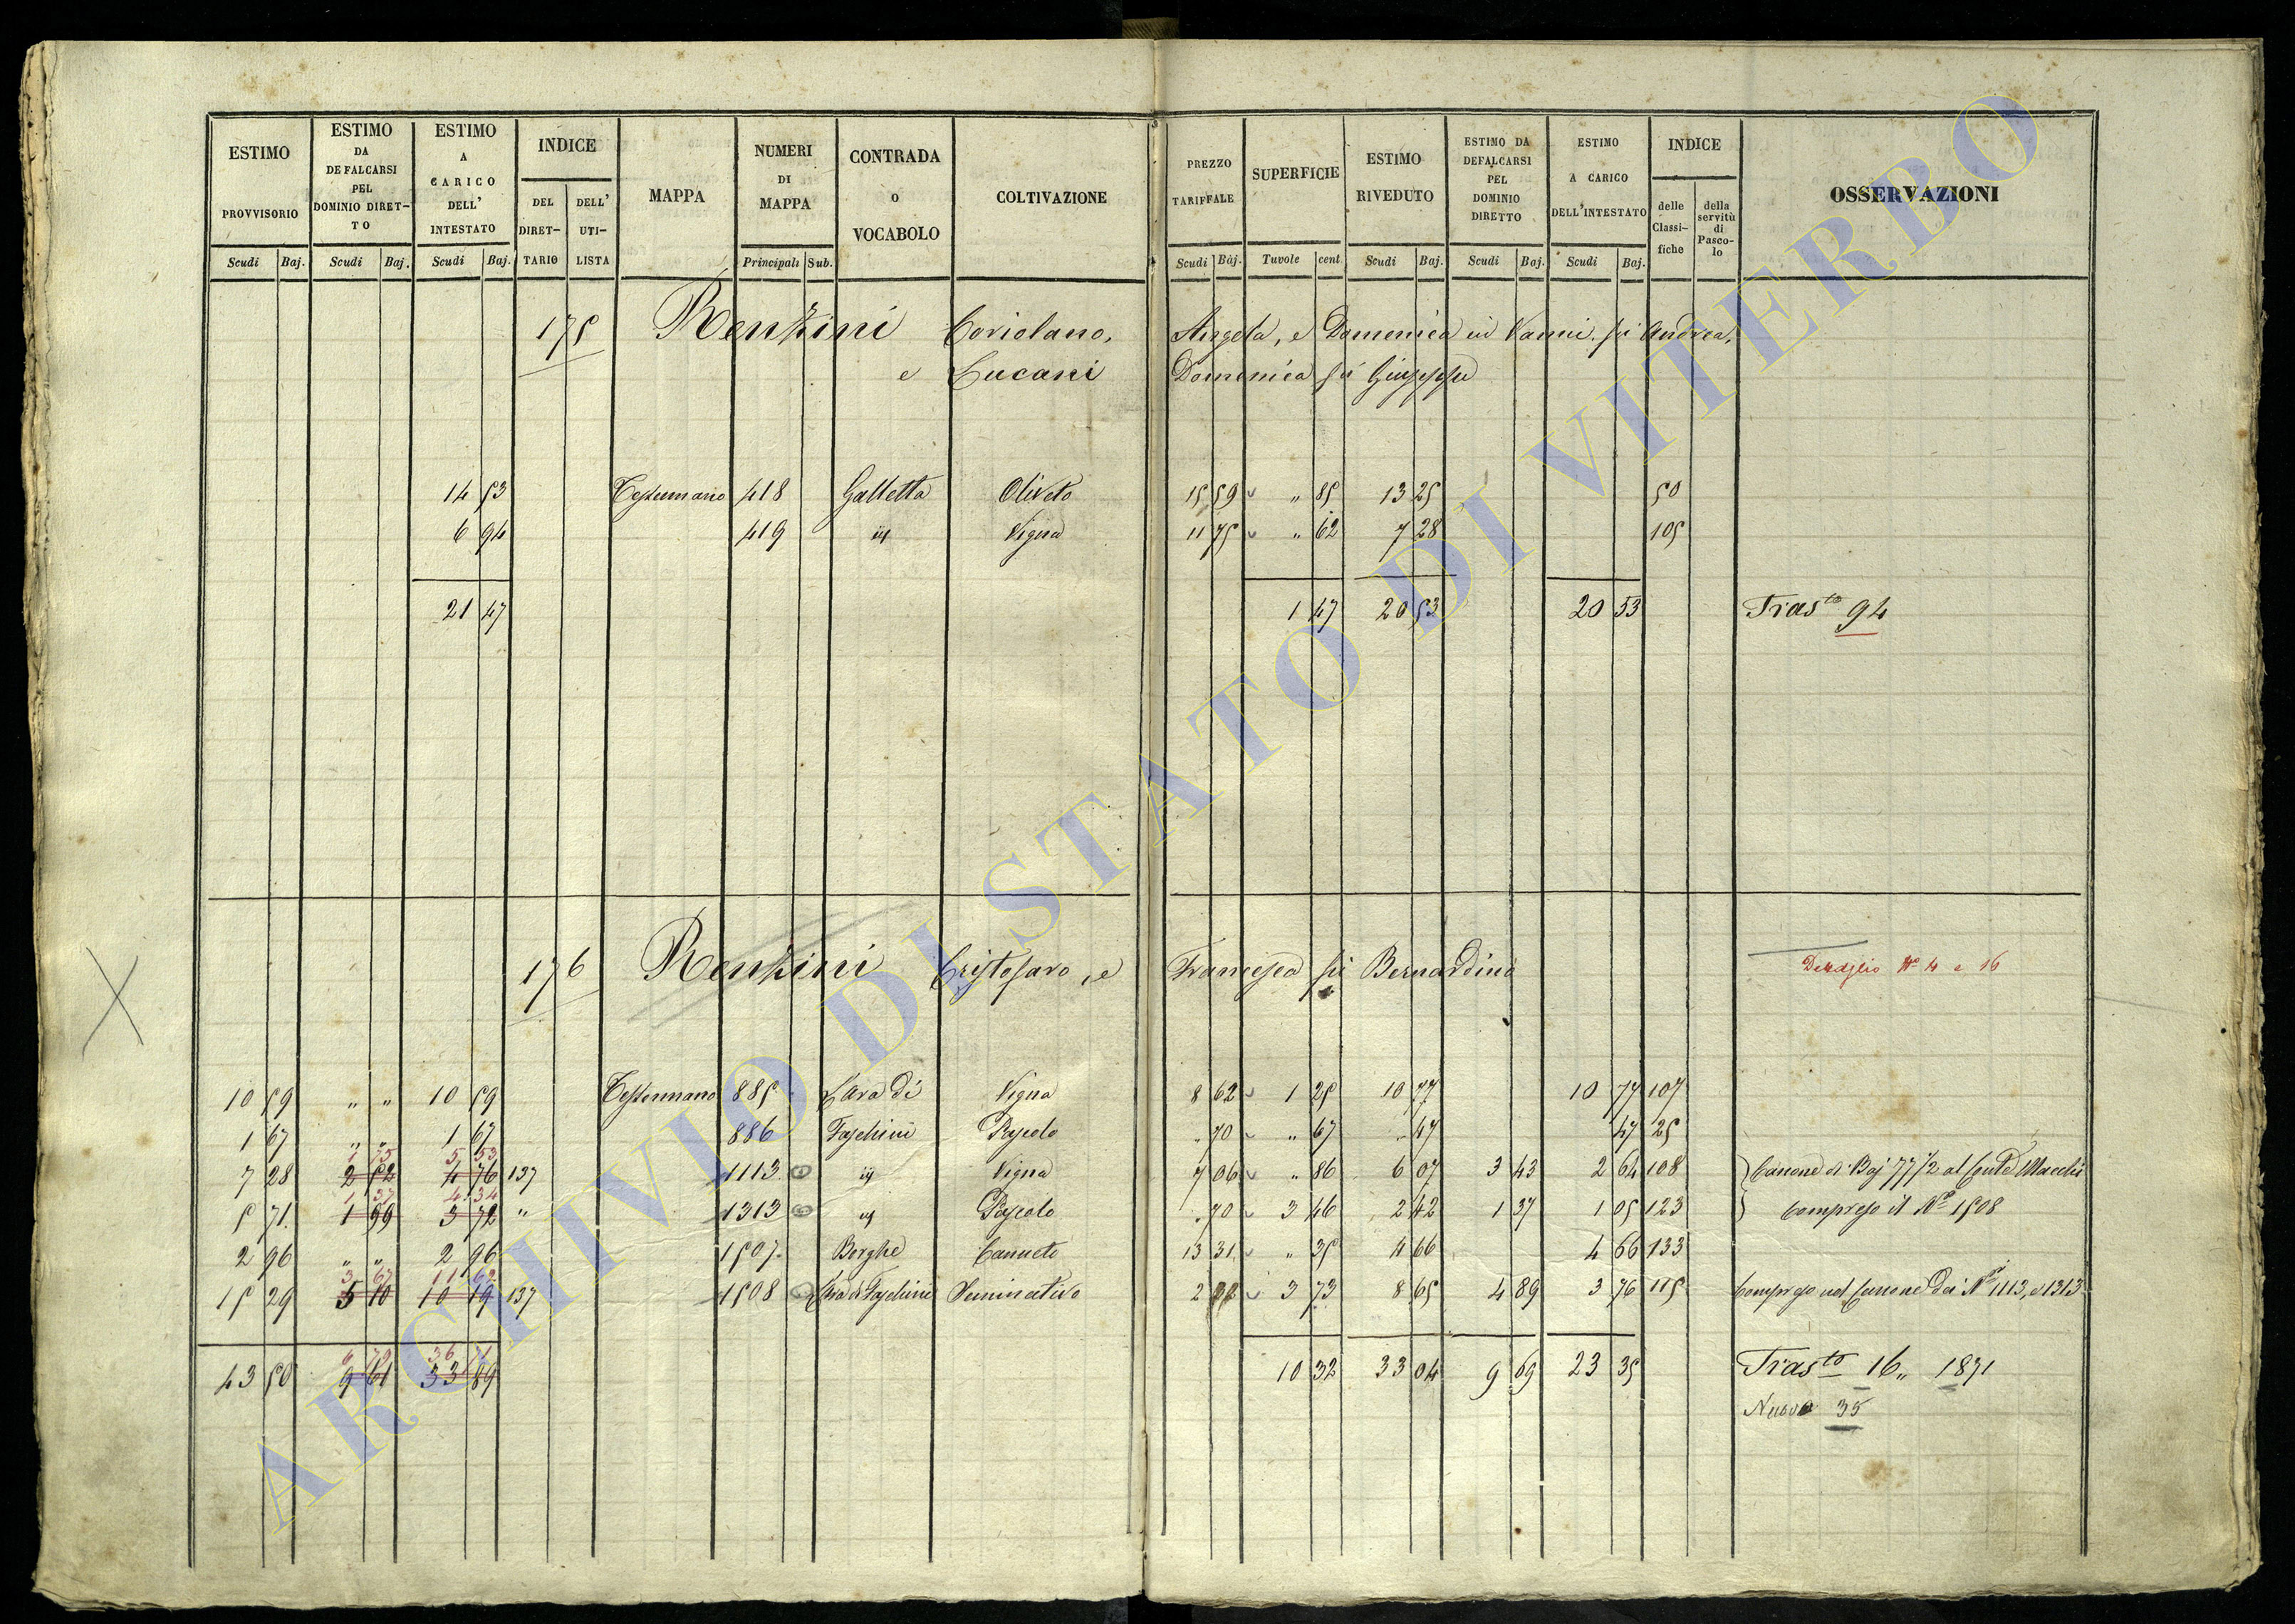 ESTIMO PROVVISORIO Scudi Baj.
ESTIMO DA DEFALCARSI PEL DOMINIO DIRET-TO Scudi Baj.
ESTIMO A CARICO DELL' INTESTATO Scudi Baj.
INDICE DEL DIRET-TARIO DELL' UTI-LISTA
MAPPA
NUMERI DI MAPPA Principali Sub.
CONTRADA O VOCABOLO
COLTIVAZIONE
PREZZO TARIFFALE Scudi Baj.
SUPERFICIE Tavole cent.
ESTIMO RIVEDUTO Scudi Baj.
ESTIMO DA DEFALCARSI PEL DOMINIO DIRETTO Scudi Baj.
ESTIMO A CARICO DELL'INTESTATO Scudi Baj.
INDICE delle Classi-fiche della servitù di Pasco-lo
OSSERVAZIONI
175 Renzini Coriolano, Angela, e Domenica in Vanni fu Andrea,
e Lucani Domenica fu Giuseppe
14 53 418 Galletta Oliveto 15 59 " 85 13 25 50
6 94 419 id Vigna 11 75 " 62 7 28 105
21 47 1 47 20 53 20 53 Tras.to 94
176 Renzini Cristofaro, e Francesca fu Bernardino
Dettaglio N° 4 e 16
10 59 " " 10 59 885 Vigna 8 62 1 25 10 77 10 77 107
1 67 " " 1 67 886 Faschini Pascolo " 70 " 67 " 47 47 25
1 75 5 53
7 28 2 52 4 76 137 1113 id Vigna 7 06 " 86 6 07 3 43 2 64 108 Canone di Baj 77 1/2 al
1 37 4 34
5 71 1 99 3 72 " 1313 id Pascolo " 70 3 46 2 42 1 37 1 05 123 compreso il N° 1508
2 96 " " 2 96 1507 Borghe Canneto 13 31 " 35 4 66 4 66 133
3 67 11 62
15 29 5 10 10 19 137 1508 Seminativo 2 3 73 8 65 4 89 3 76 115 Compreso nel Canone dei N° 1113, e 1313
6 79 36 71
43 50 9 61 33 89 10 32 33 04 9 69 23 35 Tras.to 16,, 1871
Nuovo 35
ARCHIVIO DI STATO DI VITERBO